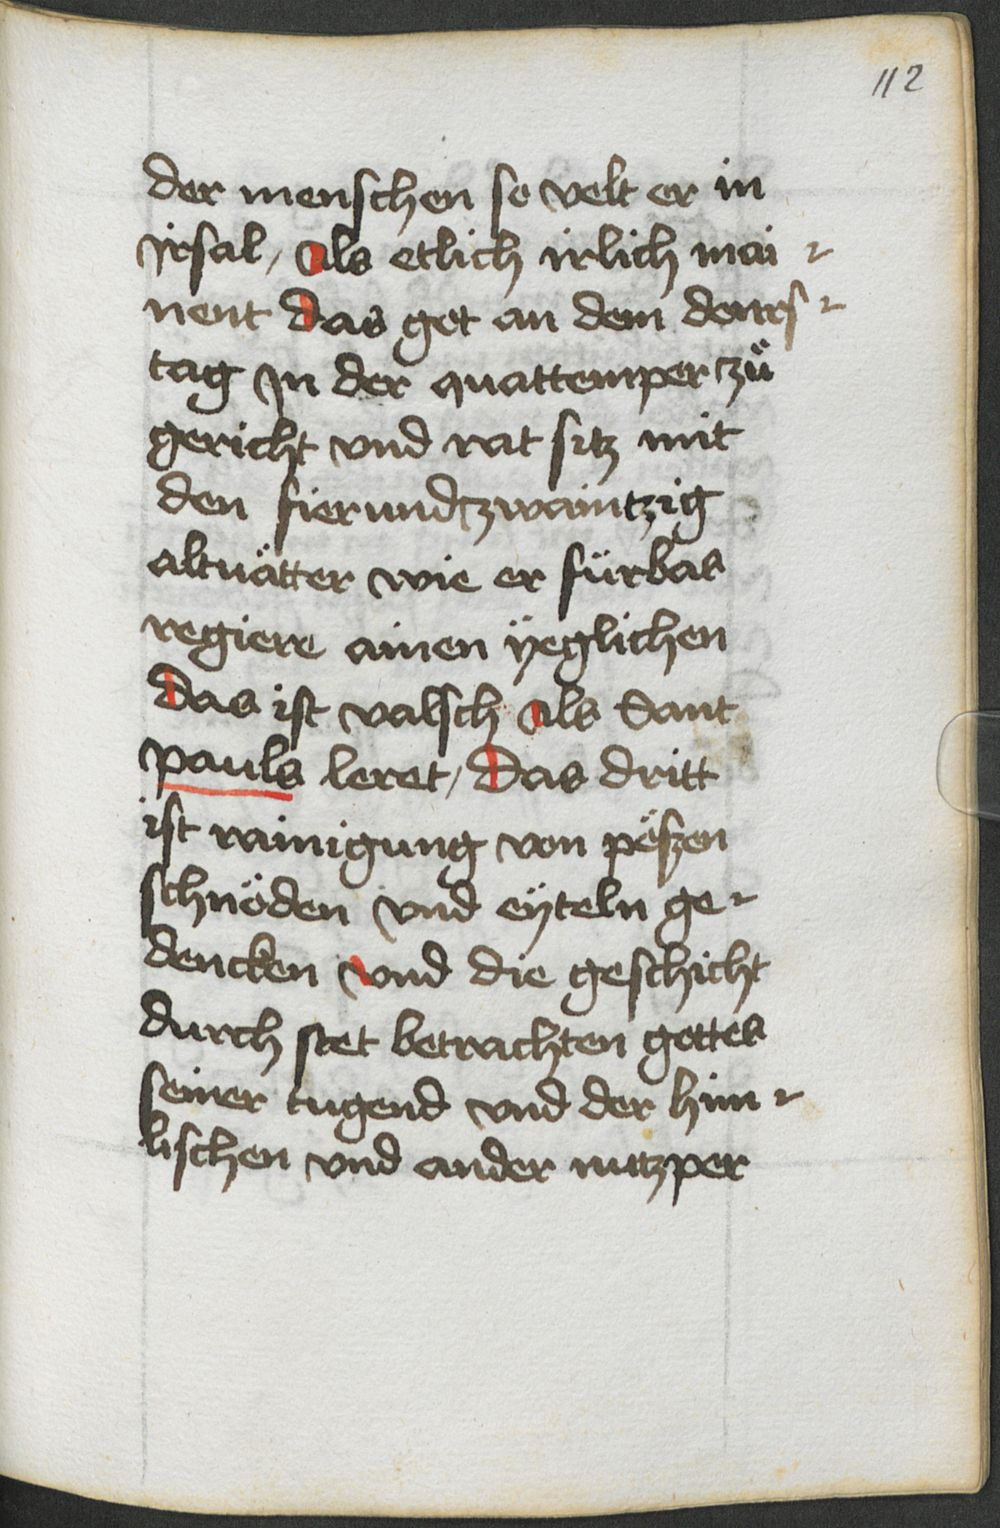 112
der menschen so velt er in
irsal / als etlich irlich mai-
nent Das got an dem donrs-
tag jn der quattemper zů
gericht vnd rat sitz mit
den fierundzwaintzig
altuätter wie er fürbas
regiere ainen ÿeglichen
Das ist valsch als Sant
pauls leret / Das dritt
ist rainigung von pößen
schnöden vnd eÿteln ge-
dencken vnd die geschicht
durch stet betrachten gottes
seiner tugend vnd der him-
lischen vnd ander nutzper